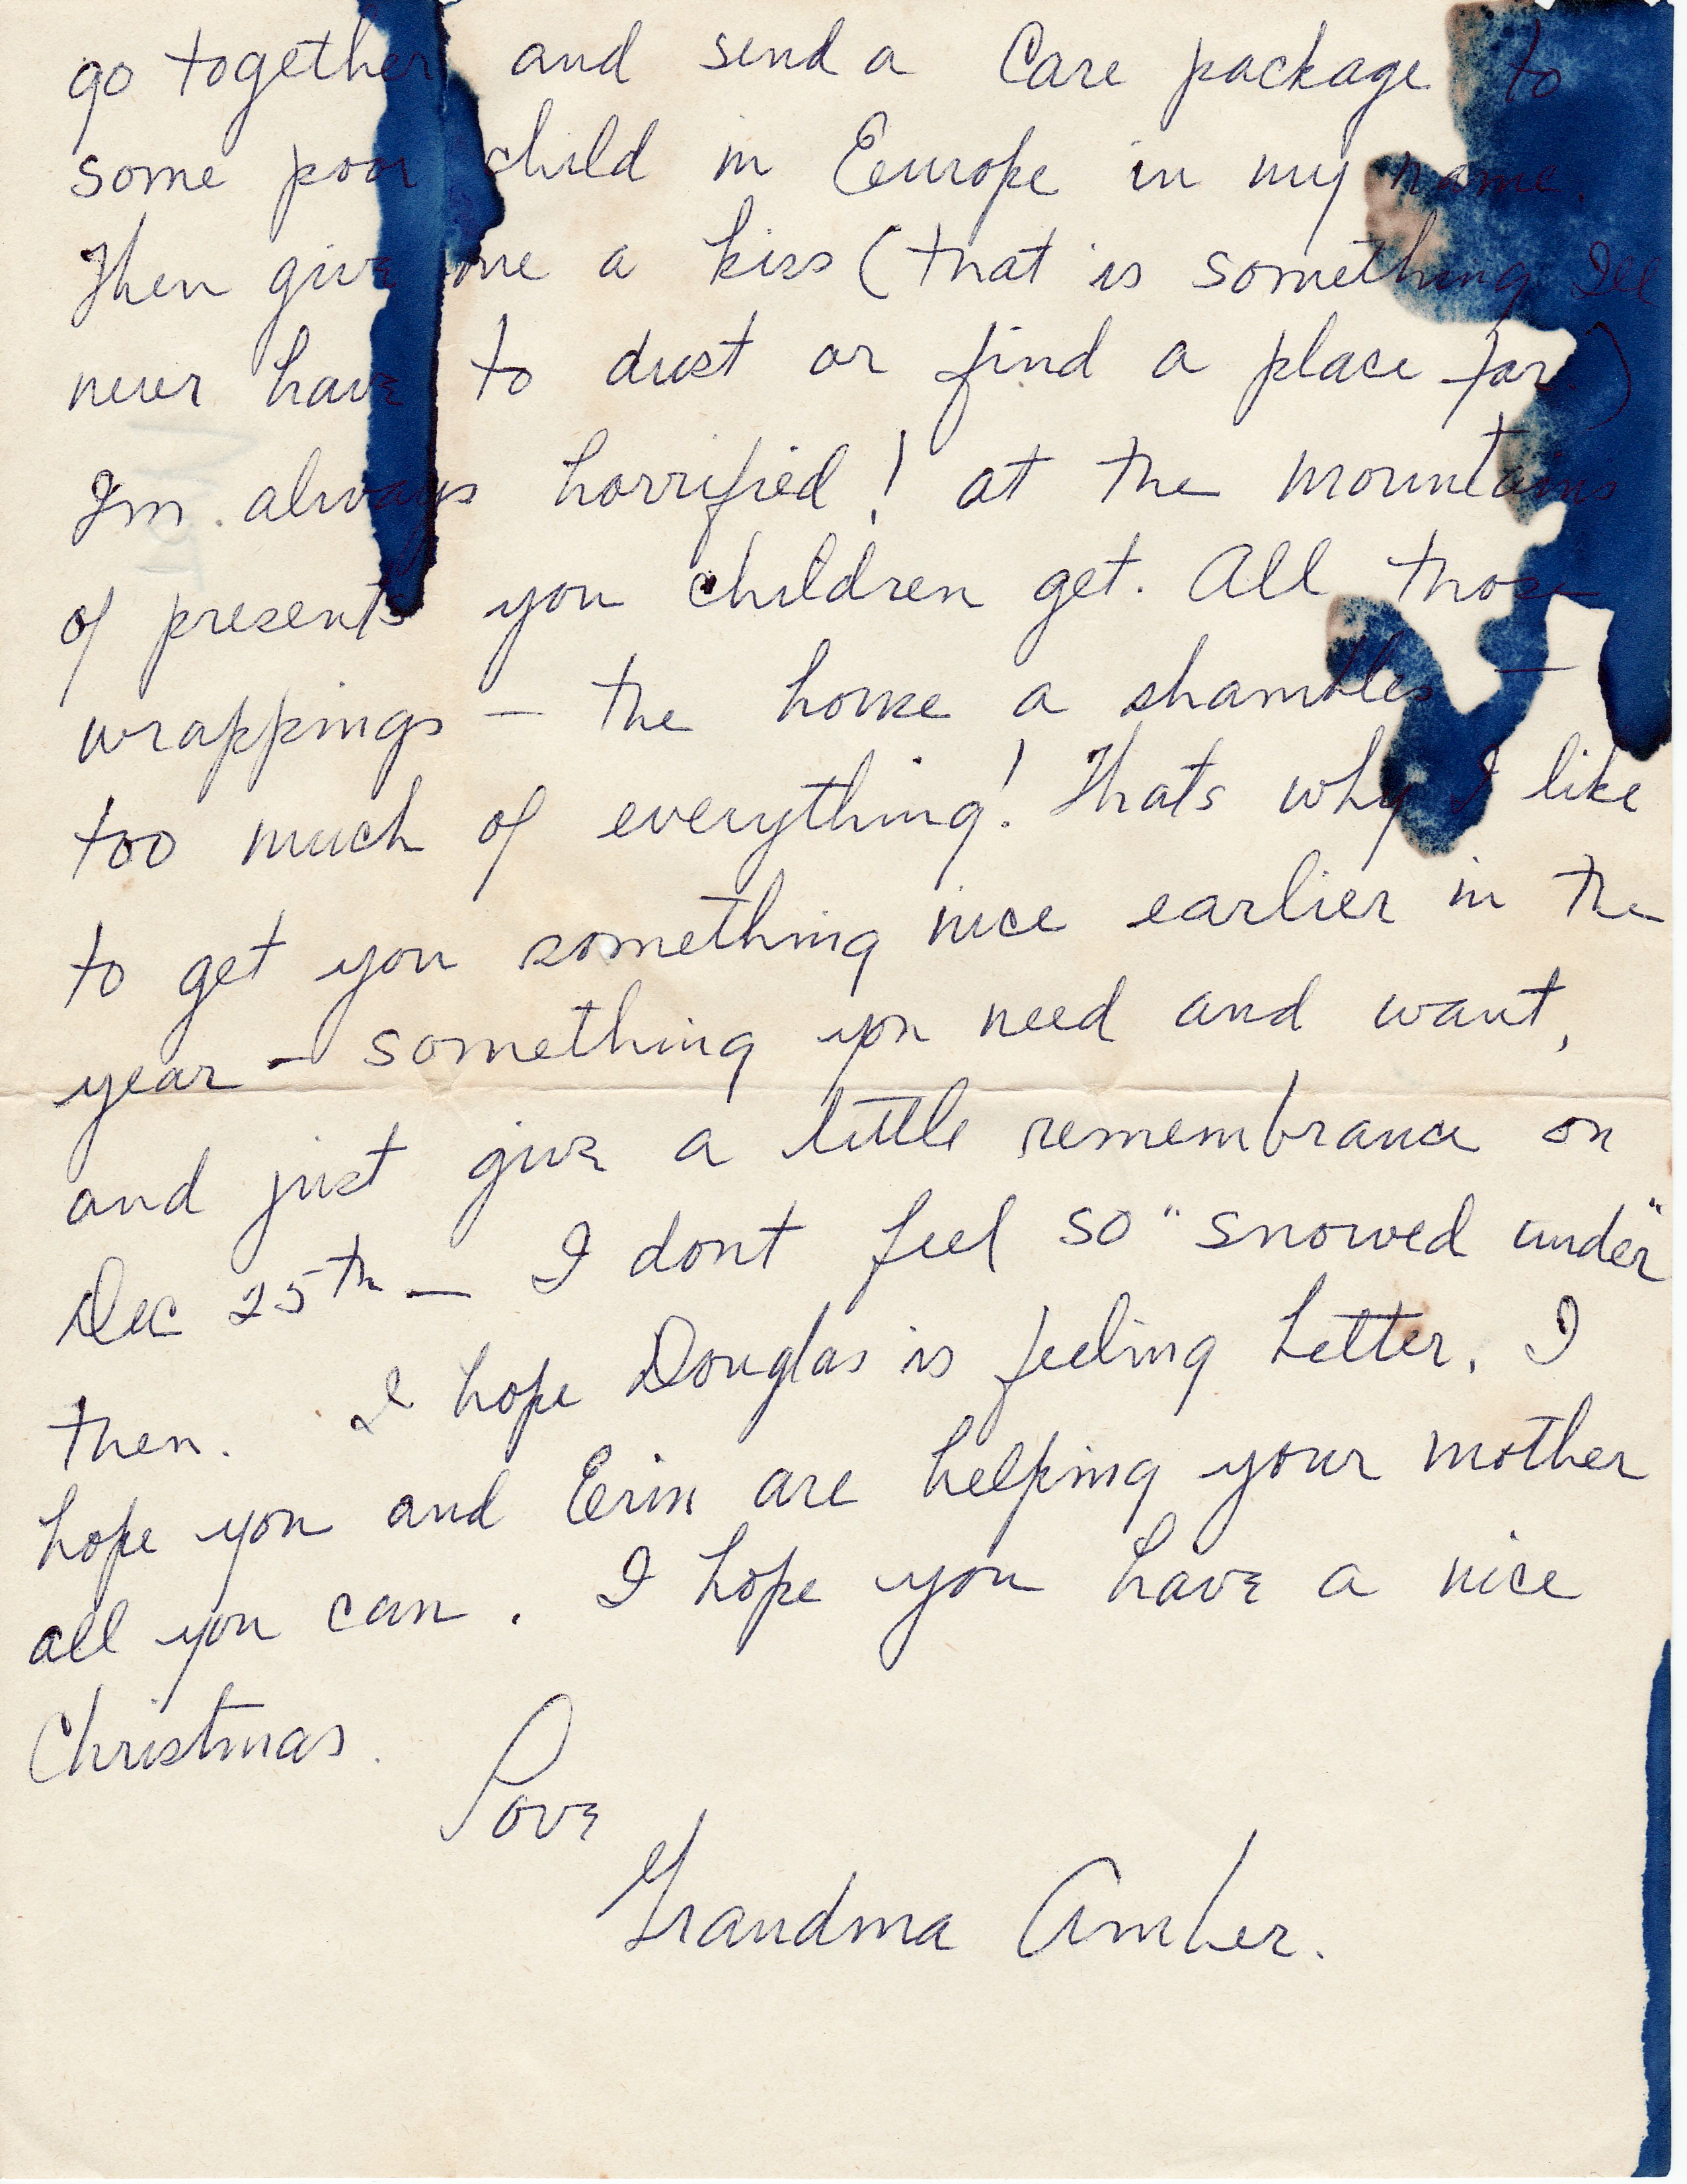 go together and send a Care package to
some poor child in Europe in my name.
Then give me a kiss (that is something Ill
never have to dust or find a place for.)
Im always horrified! at the mountains
of presents you children get. All those
wrappings – the house a shambles –
too much of everything! Thats why I like
to get you something nice earlier in the
year – something you need and want,
and just give a little remembrance on
Dec 25th – I dont feel so "snowed under"
then. I hope Douglas is feeling better. I
hope you and Erin are helping your mother
all you can. I hope you have a nice
Christmas.
Love
Grandma Amber.